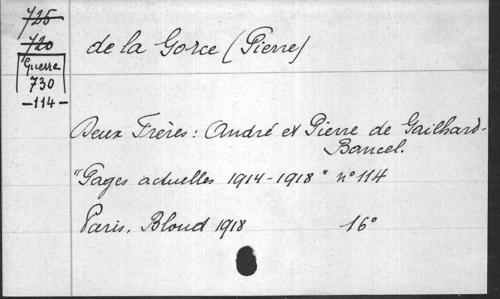 725
720
Guerre
730
-114-
de la Gorce (Pierre)
Deux Frères: André et Pierre de Gailhard-
Bancel.
"Pages actuelles 1914-1918" n° 114
Paris, Bloud 1918 16°